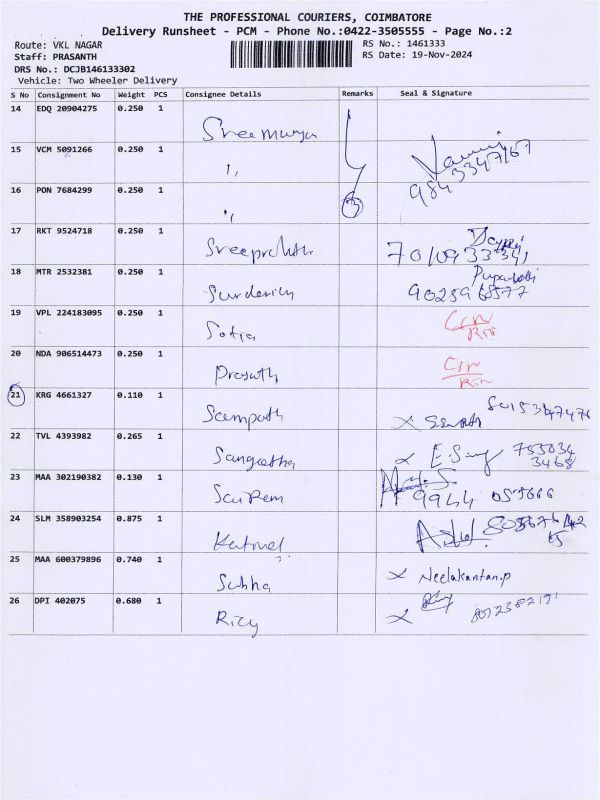 THE PROFESSIONAL COURIERS, COIMBATORE
Delivery Runsheet - PCM - Phone No.:0422-3505555 - Page No.:2
Route: VKL NAGAR
RS No.: 1461333
Staff: PRASANTH
RS Date: 19-Nov-2024
DRS No.: DCJB146133302
Vehicle: Two Wheeler Delivery
S No Consignment No Weight PCS Consignee Details Remarks Seal & Signature
14 EDQ 20904275 0.250 1
15 VCM 5091266 0.250 1 "
16 PON 7684299 0.250 1 " 3
17 RKT 9524718 0.250 1
18 MTR 2532381 0.250 1
19 VPL 224183095 0.250 1
20 NDA 906514473 0.250 1 Prasath
21 KRG 4661327 0.110 1 Sampath
22 TVL 4393982 0.265 1 Sangeetha
23 MAA 302190382 0.130 1 Sai Ram 9944 055666
24 SLM 358903254 0.875 1
25 MAA 600379896 0.740 1 Subha x Neelakantan.P
26 DPI 402075 0.680 1 x